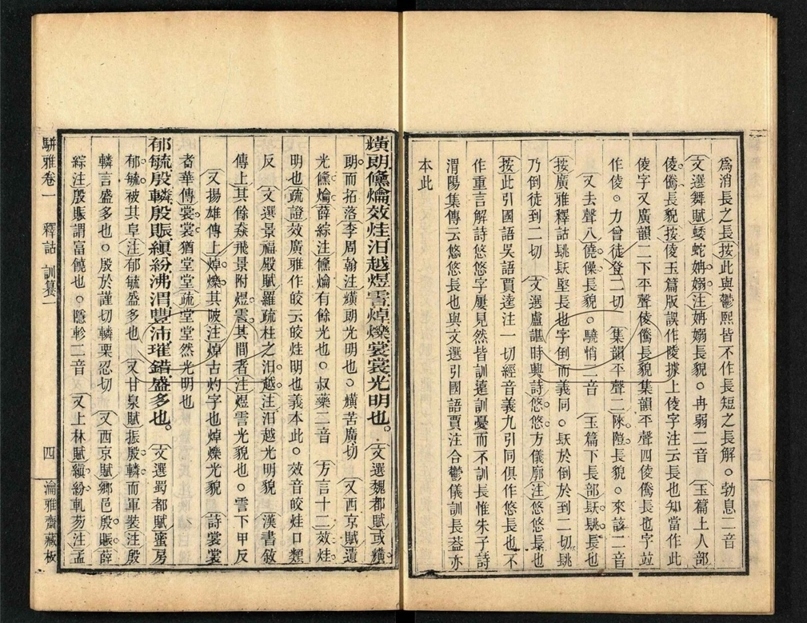 爲消長之長按此與鬱熙皆不作長短之長解○勃息二音
文選舞賦蜲蛇姌嫋注姌嫋長貌○冉弱二音 玉篇上人部
倰僑長貌按倰玉篇版誤作陵據上倰字注云長也知當作此
倰字又廣韻二下平聲倰僑長貌集韻平聲四倰僑長也字竝
作倰○力曾徒登二切 集韻平聲二 長貌○來該二音
又去聲八僥 長貌○驍悄二音 玉篇下長部 長也
按廣雅釋詁 長也字倒而義同○ 於倒於到二切
乃倒徒到二切 文選盧諶時興詩悠悠方儀廓注悠悠長也
按此引國語吳語賈逵注一切經音義九引同俱作悠長也不
作重言解詩悠悠字屢見然皆訓遠訓憂而不訓長惟朱子詩
渭陽集傳云悠悠長也與文選引國語賈注合鬱儀訓長蓋亦
本此
熿朗儵爚效烓汨越煜霅焯爍裳裳光明也。文選魏都賦或熿
朗而拓落李周翰注熿朗光明也○熿苦廣切 又西京賦遺
光儵爚薛綜注儵爚有餘光也○叔藥二音 方言十二效烓
明也疏證效廣雅作皎云皎烓明也義本此○效音皎烓口類
反 文選景福殿賦羅疏柱之汨越注汨越光明貌 漢書敘
傳上其餘猋飛景附煜霅其間者注煜霅光貌也○霅下甲反
又揚雄傳上焯爍其陂注焯古灼字也焯爍光貌 詩裳裳
者華傳裳裳猶堂堂疏堂堂然光明也
郁毓殷轔殷賑縝紛沸渭豐沛璀錯盛多也。文選蜀都賦蜜房
郁毓被其阜注郁毓盛多也 又甘泉賦振殷轔而軍裝注殷
轔言盛多也○殷於謹切轔栗忍切 又西京賦鄉邑殷賑薛
綜注殷賑謂富饒也○隱軫二音 又上林賦縝紛軋芴注孟
駢雅卷一 釋詁 訓纂一 四 瀹雅齋藏板